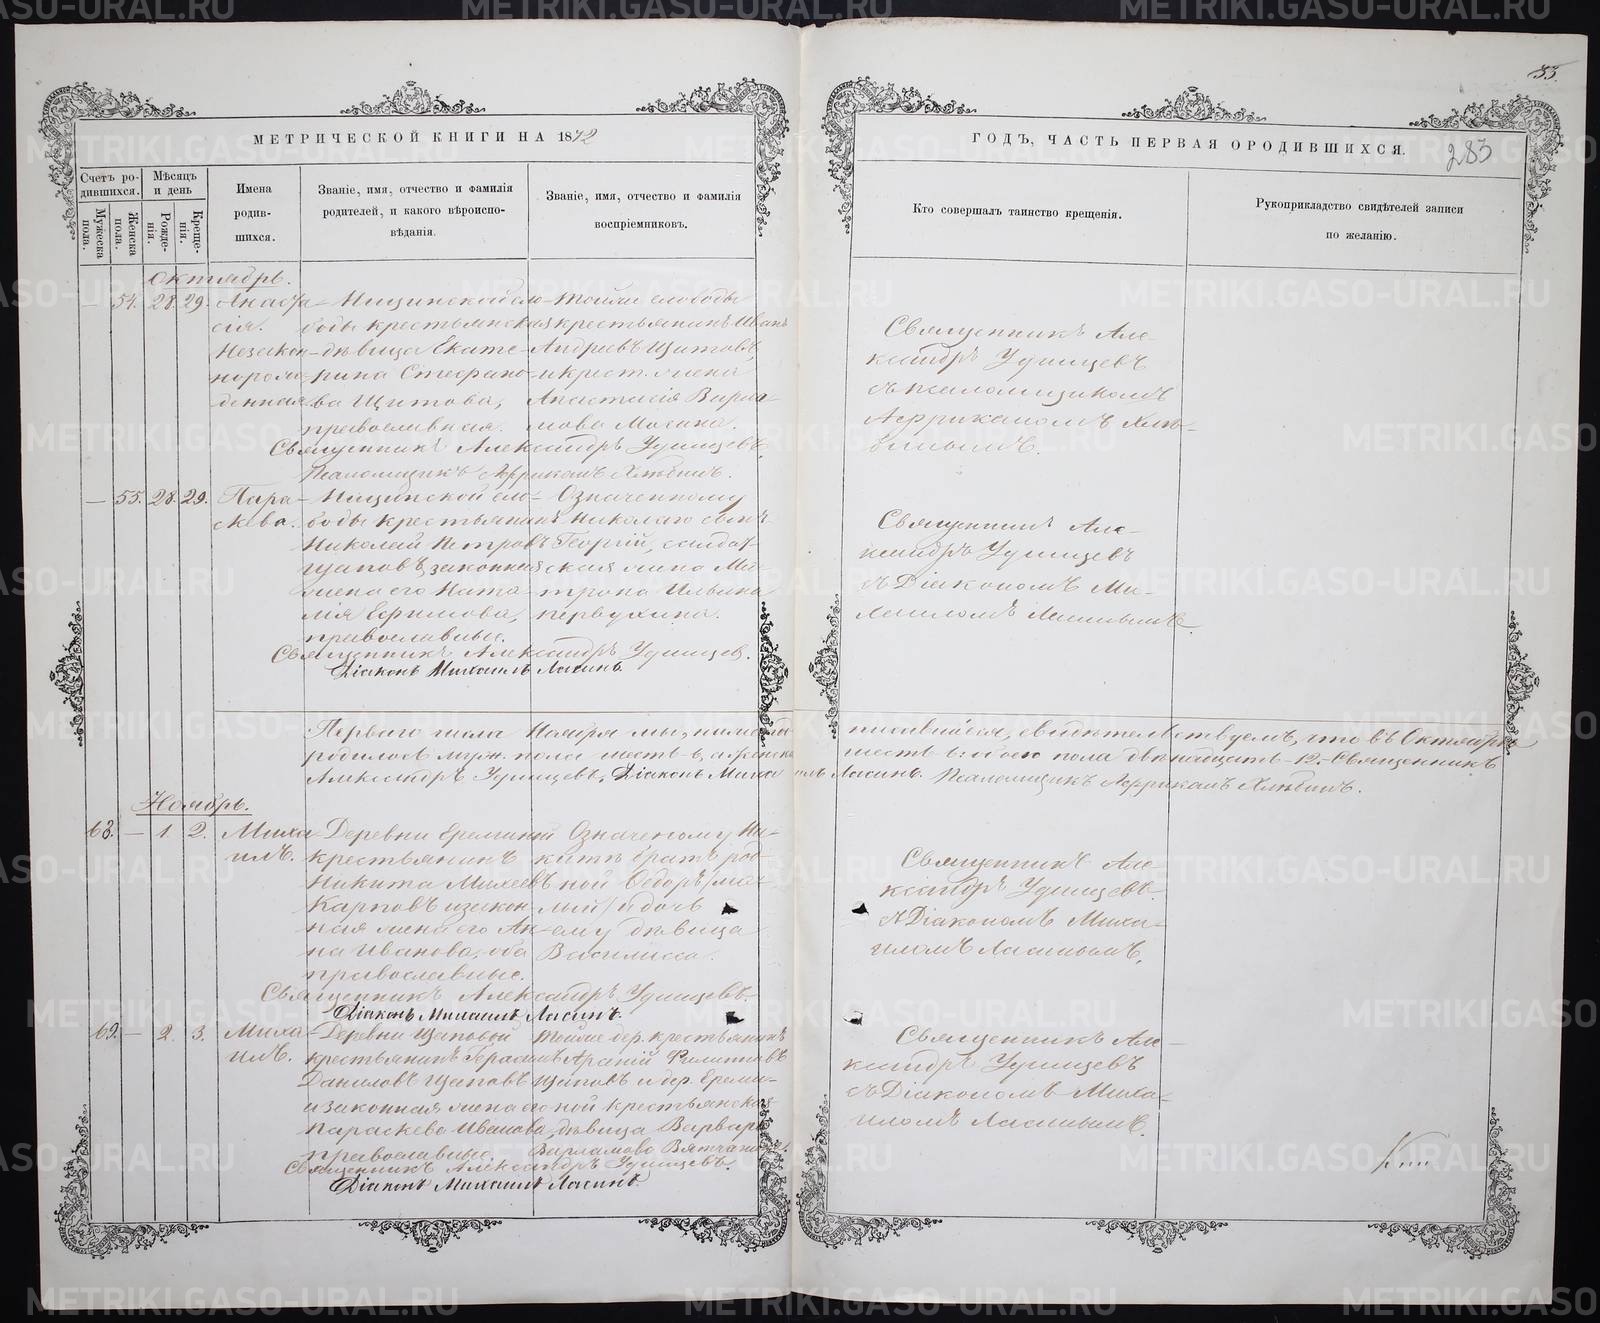 53.
283
МЕТРИЧЕСКОЙ КНИГИ НА 1872
ГОДЪ, ЧАСТЬ ПЕРВАЯ О РОДИВШИХСЯ.
Счетъ ро-
дившихся.
Мужеска
пола.
Женска
пола.
Мѣсяцъ
и день
Рожде-
нія.
Креще-
нія.
Имена
родив-
шихся.
Званіе, имя, отчество и фамилія
родителей, и какого вѣроиспо-
вѣданія.
Званіе, имя, отчество и фамилія
воспріемниковъ.
Кто совершалъ таинство крещенія.
Рукоприкладство свидѣтелей записи
по желанію.
Октябрь.
— 54. 28. 29. Анаста-
сія.
Незакон-
норож-
денная
Ницинской сло-
боды крестьянская
дѣвица Екате-
рина Стефано-
ва Щитова,
православная.
Тойже слободы
крестьянинъ Иванъ
Андреевъ Щитовъ
и крест. жена
Анастасія Варла-
мова
Священникъ Александръ Удинцевъ.
Псаломщикъ Африканъ Хлѣбинъ.
Священникъ Але-
ксандръ Удинцевъ
съ псаломщикомъ
Африканомъ Хлѣ-
бинымъ.
— 55. 28. 29. Пара-
скева.
Ницинской сло-
боды крестьянинъ
Николай Петровъ
Щаповъ, законная
жена его Ната-
лія Ефимова,
православные.
Означенному
Николаю сынъ
Георгій, солдат-
ская жена Ма-
трона Ильина
Первухина.
Священникъ Александръ Удинцев.
Діаконъ Михаилъ Ласинъ.
Священникъ Але-
ксандръ Удинцевъ
съ Діакономъ Ми-
хаиломъ Ласинымъ.
Перваго числа Ноября мы, нижепод
писавшіеся, свидѣтельствуемъ, что въ Октябрѣ
родилось муж. пола шесть 6, а женска
шесть 6: обоего пола двѣнадцать 12. Священникъ
Александръ Удинцевъ, Діаконъ Миха
илъ Ласинъ. Псаломщикъ Африканъ Хлѣбинъ.
Ноябрь.
68. — 1. 2. Миха-
илъ.
Деревни Ереминой
крестьянинъ
Никита Михеевъ
Карповъ и закон
ная жена его Ан-
на Иванова, оба
православные.
Означеному Ни-
китѣ братъ род-
ной Ѳедоръ /ма-
лый/ и дочь
ему дѣвица
Василисса.
Священникъ Александръ Удинцевъ.
Діаконъ Михаилъ Ласинъ.
Священникъ Але-
ксандръ Удинцевъ
съ Діакономъ Миха-
иломъ Ласинымъ.
69. — 2. 3. Миха-
илъ.
Деревни Щаповой
крестьянинъ Герасимъ
Даниловъ Щаповъ
и законная жена его
Параскева Иванова,
православные.
Тойже дер. крестьянинъ
Арсній Филиповъ
Щаповъ и дер. Ереми-
ной крестьянская
дѣвица Варвара
Варламова
Священникъ Александръ Удинцевъ.
Діаконъ Михаилъ Ласинъ.
Священникъ Але-
ксандръ Удинцевъ
съ Діакономъ Миха-
иломъ Ласинымъ.
METRIKI.GASO-URAL.RU